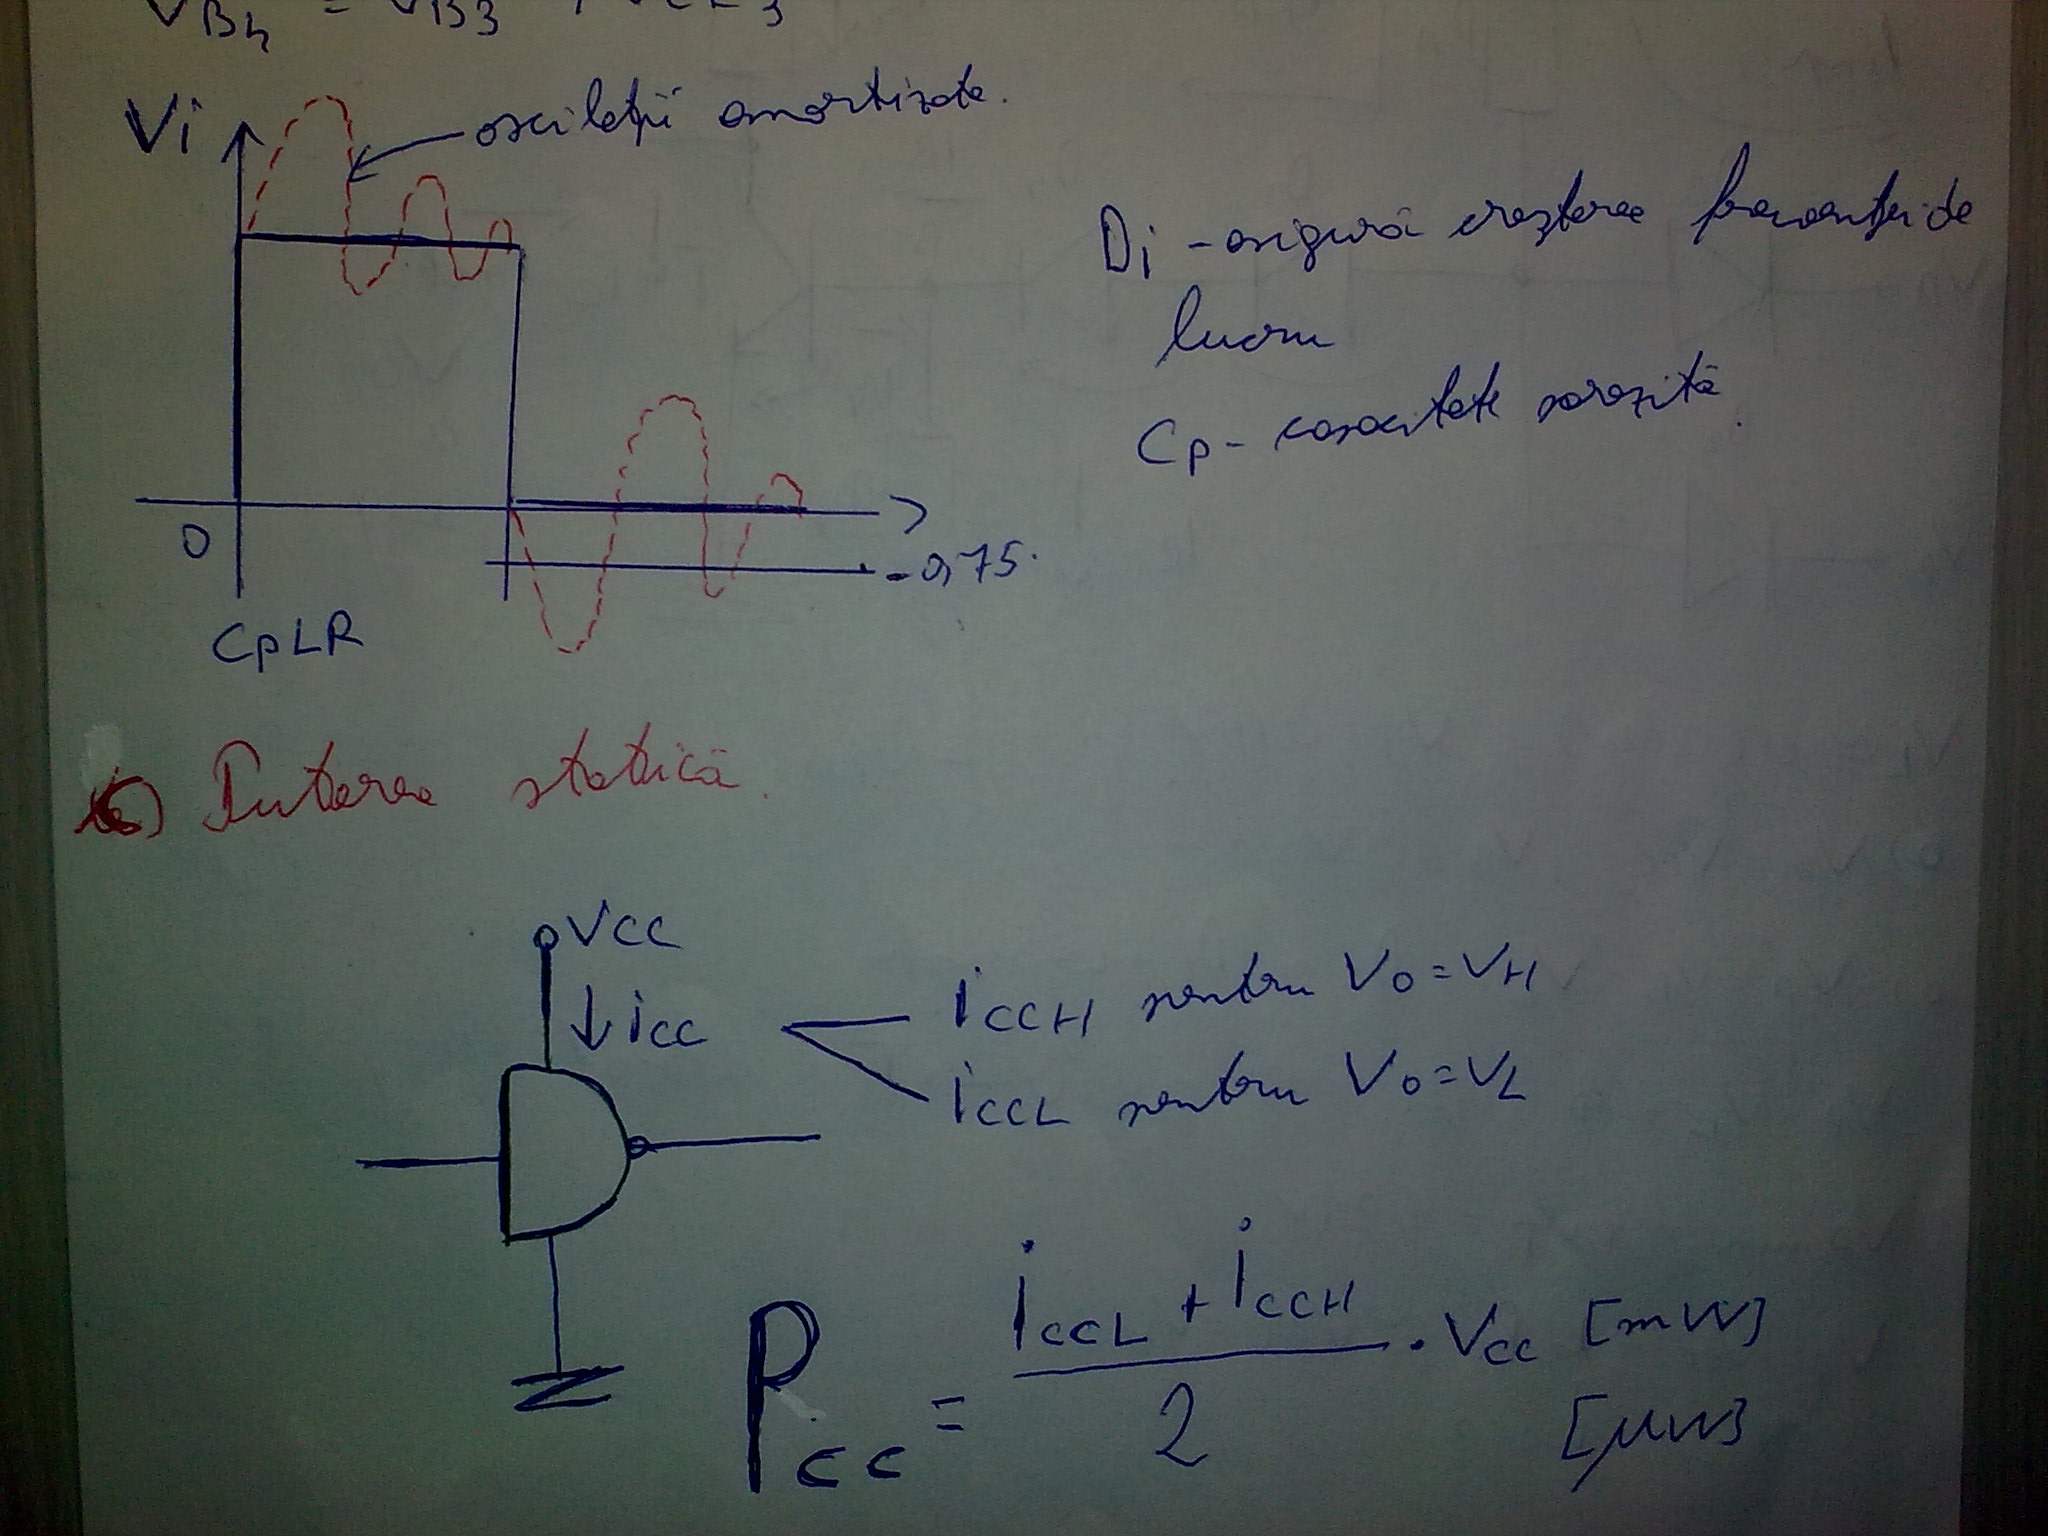 VB4 = VB3 + VCE3
Vi
oscilații amortizate.
Di - asigură creșterea frecvenței de
lucru
Cp - capacitate parazită.
0
-0,75.
CpLR
Puterea statică.
VCC
iCC
iCCH pentru VO=VH
iCCL pentru VO=VL
PCC = (iCCL + iCCH) / 2 · VCC [mW]
[μW]